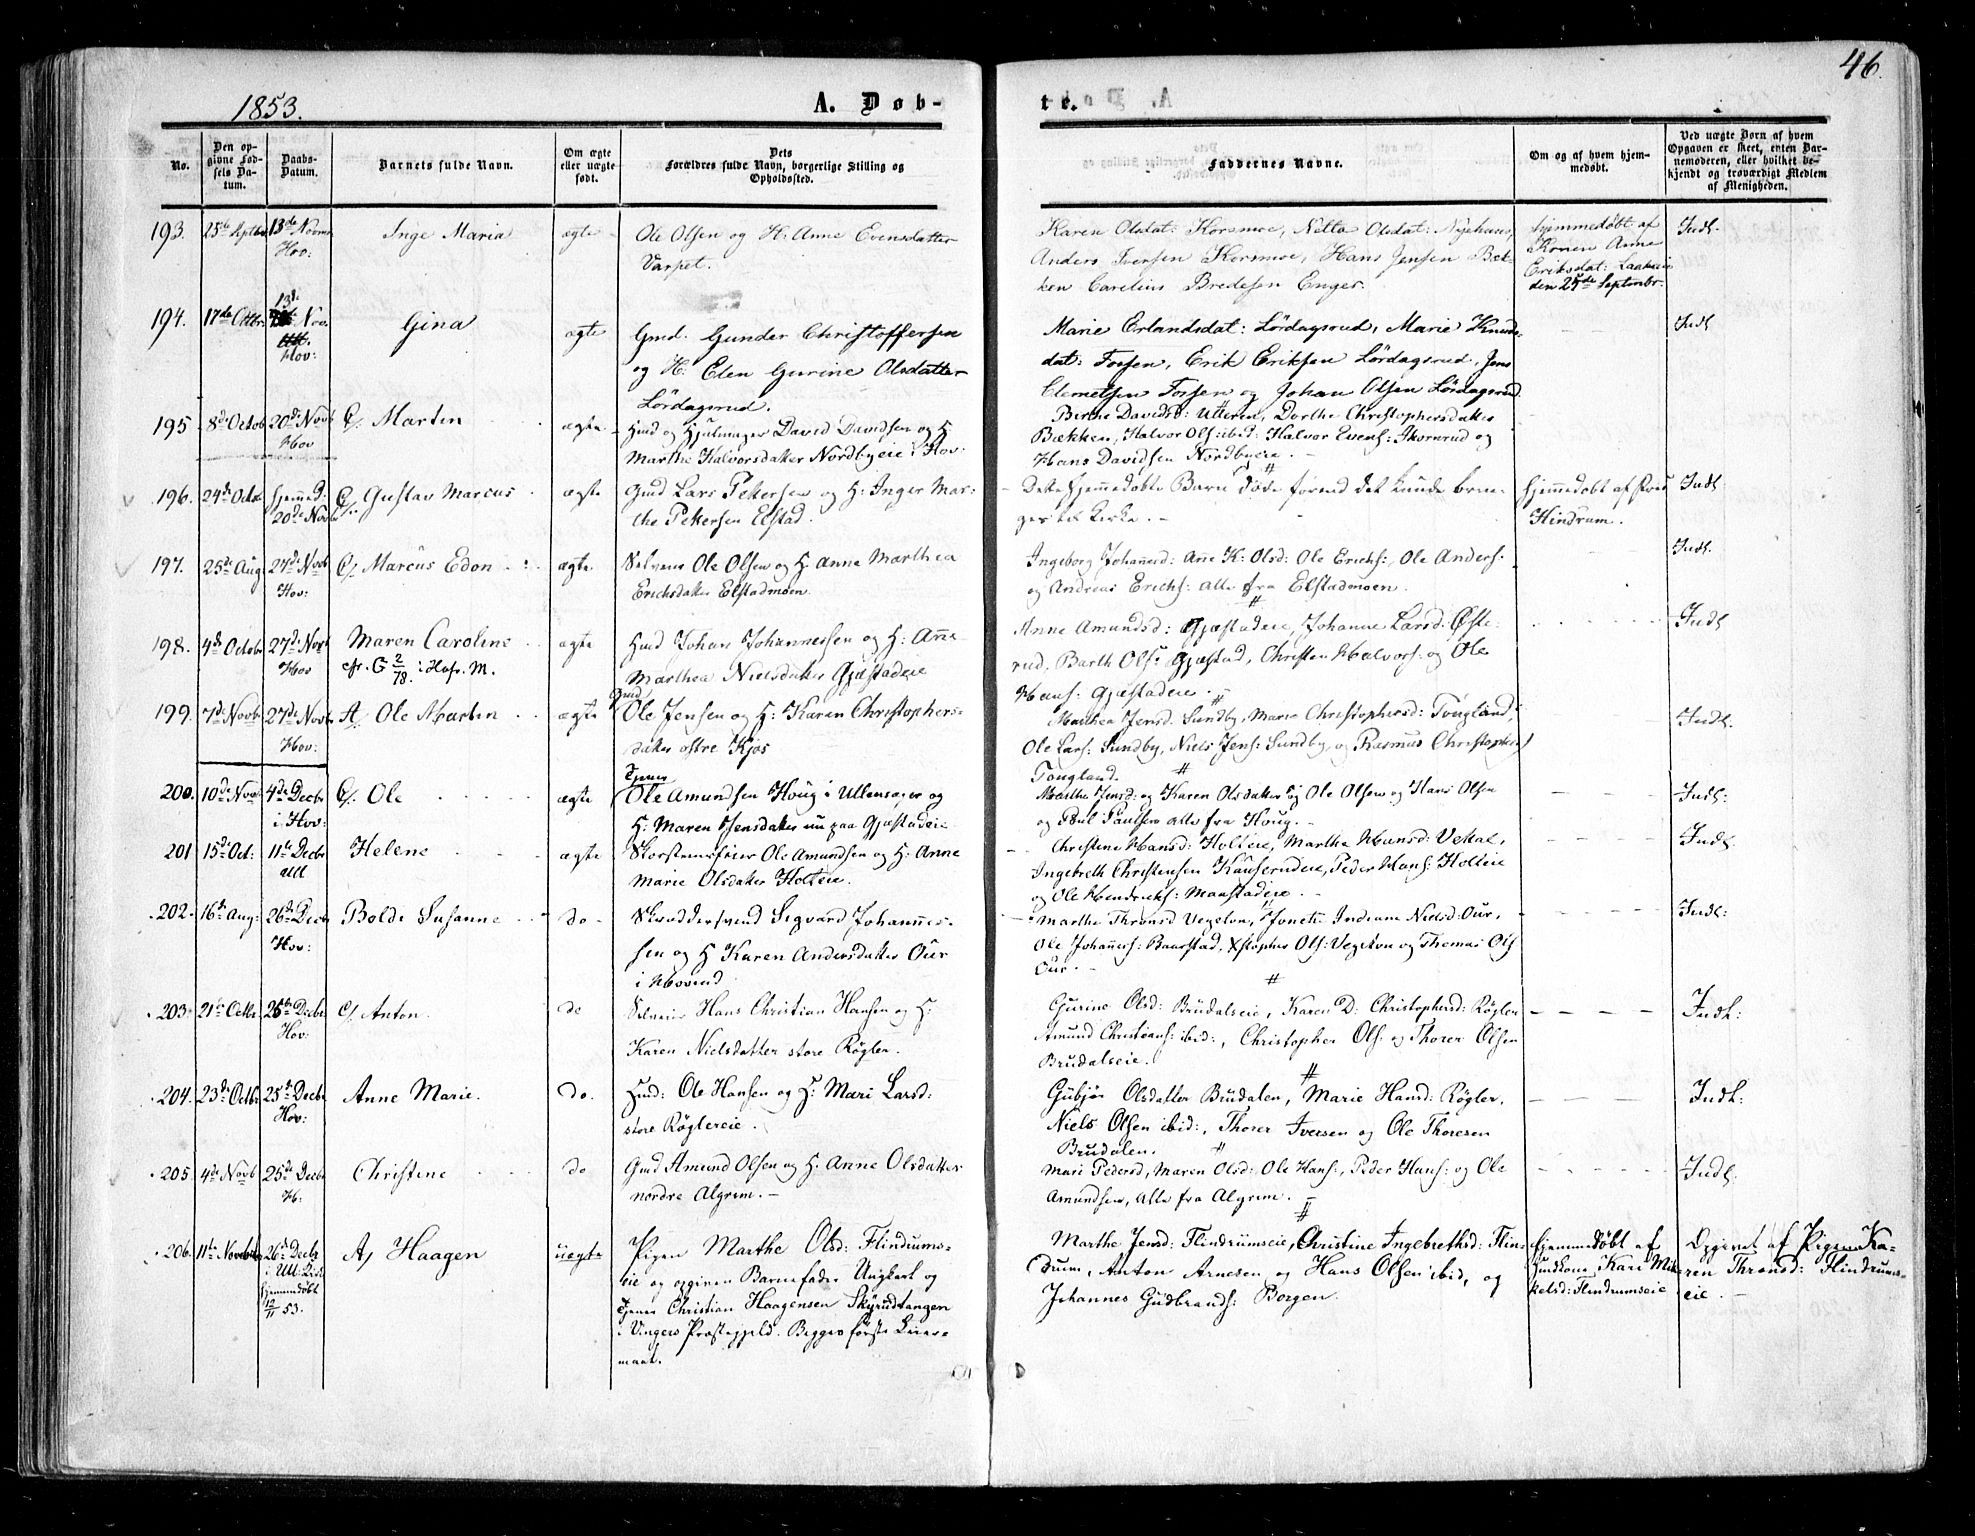 1853.
A. Døb-
te.
46.
No.
Den op-
givne Fød-
sels Da-
tum.
Daabs-
Datum.
Barnets fulde Navn.
Om ægte
eller uægte
født.
Dets
Forældres fulde Navn, borgerlige Stilling og
Opholdssted.
Faddernes Navne.
Om og af hvem hjem-
medøbt.
Ved uægte Born af hvem
Opgaven er skeet, enten Bar-
nemoderen, eller hvilket be-
kjendt og troværdigt Medlem
af Menigheden.
193.
25de Septbr
13de Novbr
Hov:
Inge Maria
ægte
Ole Olsen og H: Anne Evensdatter
Varpet.
Karen Olsdat: Korsmoe, Netta Olsdat: Nyehuus,
Anders Iversen Korsmoe, Hans Jensen Bæk-
ken Carelius Bredesen Enger.
hjemmedøbt af
Konen Anne
Eriksdat:
den 25de Septmbr.
Indl.
194.
17de Octbr
13de Nov.
Hov:
Gina
ægte
Gmd. Gunder Christoffersen
og H: Elen Gurine Olsdatter
Lördagsrud.
Marie Erlandsdat: Lördagsrud, Marie Knuds-
dat: Fossen, Erik Eriksen Lördagsrud, Jens
Clemetsen Fossen og Johan Olsen Lördagsrud.
Indl
195
8de Octob
20de Novb
Hov
Martin
ægte
Hmd og Hjulmager David Davidsen og H
Marthe Halvorsdatter Nordbyeie i Hov.
Birthe Davidsd: Utteren, Dorthe Christophersdatter
Bækken, Halvor Ols: ibid: Halvor Evens: Skornrud og
Hans Davidsen Nordbyeie.
196.
24de Octo
hjemmed.
20de Novbr
Gustav Marcus
ægte
Gmd Lars Petersen og H: Inger Mar-
the Petersen Elstad.
Dette hjemmedøbte Barn døde forend det kunde brin-
ges til Kirke.
hjemmedobt af
Hindrum.
Indl
197.
25de Aug
27de Novb
Hov:
Marcus Edon
ægte
Selveier Ole Olsen og H. Anne Marthea
Erichsdatter Elstadmoen.
Ingeborg Johannesd: Anne K: Olsd: Ole Erichs:, Ole Anders:
og Andreas Erichs: alle fra Elstadmoen.
Indl.
198.
4de Octobr
27de Novb
Hov
Maren Caroline
cfr. G 2/78. : Hofr. M.
ægte
Hmd Johan Johannessen og H: Anne
Marthea Nielsdatter Gjæstadeie
Anne Amundsd: Gjæstadeie, Johanne Larsd. Øste-
rud, Barth Ols: Gjæstad, Christen Halvors: og Ole
Hans: Gjæstadeie.
Indl
199.
7de Novb
27de Novb
Hov:
Ole Martin
ægte
Gmd
Ole Jensen og H: Karen Christophers-
datter østre Kjos
Marthea Jensd. Sundby, Marie Christophersd: Tougland,
Ole Lars: Sundby, Niels Jens: Sundby, og Rasmus Christophers:
Tougland.
Indl.
200.
10de Novb
4de Decbr
i Hov:
Ole
ægte
Tjener
Ole Amundsen Houg i Ullensager og
H: Maren Jensdatter nu paa Gjæstadeie
Marthe Jensd: og Karen Olsdatter og Ole Olsen og Hans Olsen
og Poul Paulsen alle fra Houg.
Indl:
201
15de Oct:
11te Decbr
Ull
Helene
ægte
Skorstensfeier Ole Amundsen og H: Anne
Marie Olsdatter Holteie.
Christine Hansd: Holteie, Marthe Hansd: Vettal,
Ingebreth Christensen Kauserudeie, Peder Hans: Holteie
og Ole Hendrichs: Maastadeie.
Indl.
202.
16de Aug:
26de Decbr
Hov:
Bolde Susanne
do
Skræddersvend Sigvard Johannes-
sen og H Karen Andersdatter Our
i Hovind
Marthe Thronsd Vegelon, Jonette Indiane Nielsd: Our,
Ole Johanners: Baarstad, Xstopher Ols: Vegelon og Thomas Ols
Our.
Indl:
203.
21de Octbr
25de Decbr
Hov:
Anton.
do
Selveier Hans Christian Hansen og H:
Karen Nielsdatter store Røgler.
Gurine Olsd: Brudalseie, Karen D: Christophersd: Røgler
Amund Christians: ibid:, Christopher Ols: og Thorer Olsen
Brudalseie.
Indl:
204.
23de Octbr
25de Decbr
Hov:
Anne Marie.
do.
Hmd: Ole Hansen og H: Mari Larsd:
store Røglereie.
Gubjør Olsdatter Brudalen, Marie Hansd: Røgler,
Niels Olsen ibid:, Thorer Iversen og Ole Thoresen
Brudalen.
Indl:
205.
4de Novb
25de Decbr
H:
Christine
do
Gmd Amund Olsen og H. Anne Olsdatter
nordre Algrim.
Mari Pedersd, Maren Olsd: Ole Hans:, Peder Hans: og Ole
Amundsen, alle fra Algrim.
Indl.
206.
11te Novebr
26de Decbr
i Ull: Kirke
hjemmedøbt
12/11 53.
A, Haagen
uægte
Pigen Marthe Olsd: Flindrums-
eie og opgiven Barnefader Ungkarl og
Tjener Christian Haagensen Skyrudtangen
i Vingers Præstegjeld. Begges første Leier-
maal.
Marthe Jensd: Flindrumseie, Christine Ingebrethsd: Flin-
drum, Anton Arnesen og Hans Olsen ibid, og
Johannes Gudbrands: Borgen.
hjemmedøbt af
Huuskone Kari Mik-
kelsd: Flindrumseie
Opgivet af Pigen Ka-
ren Thronsd: Flindrums-
eie.